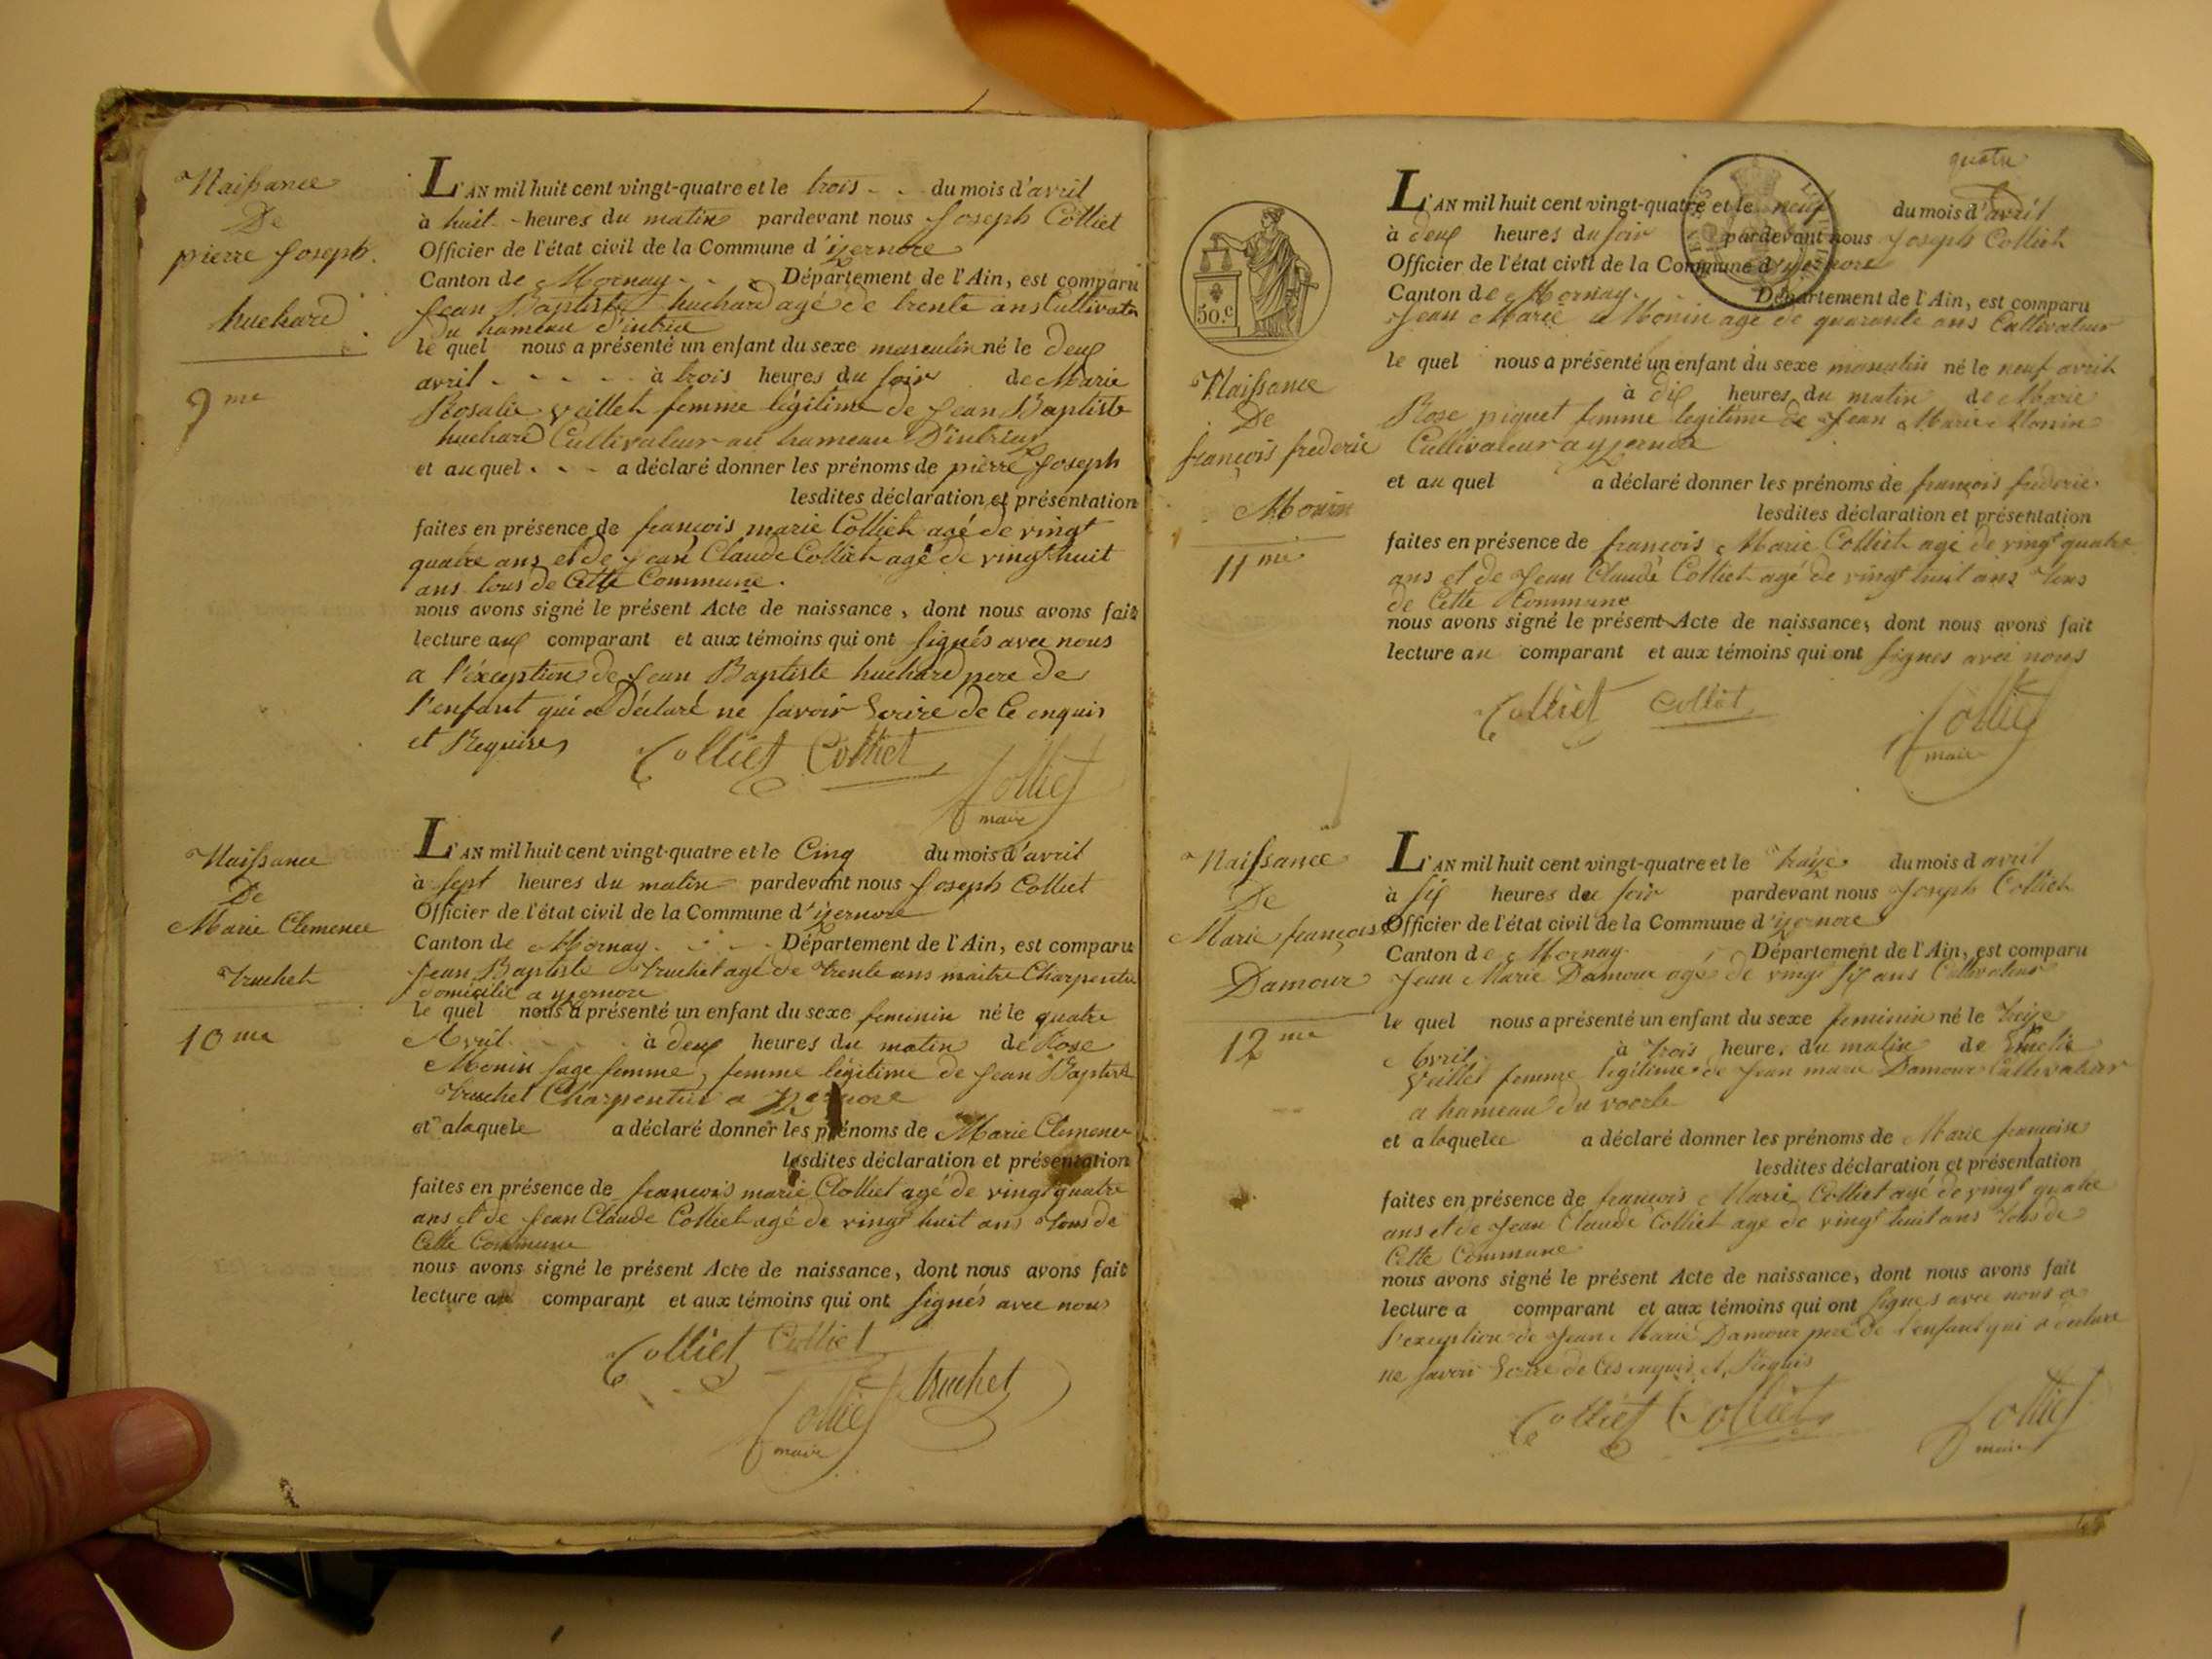 Naissance
De
pierre Joseph
huchard
9me
L'AN mil huit cent vingt-quatre et le trois du mois d'avril
à huit heures du matin pardevant nous Joseph Colliet
Officier de l'état civil de la Commune d'izernore
Canton de Mornay Département de l'Ain, est comparu
Jean Baptiste huchard agé de trente ans Cultivateur
du hameau d'intriat
le quel nous a présenté un enfant du sexe masculin né le deux
avril à trois heures du soir de Marie
Rosalie veillet femme légitime de Jean Baptiste
huchard Cultivateur au hameau D'intriat
et au quel a déclaré donner les prénoms de pierre Joseph
lesdites déclaration et présentation
faites en présence de francois marie Colliet agé de vingt
quatre ans et de Jean Claude Colliet agé de vingt huit
ans tous de Cette Commune.
nous avons signé le présent Acte de naissance, dont nous avons fait
lecture aux comparant et aux témoins qui ont signés avec nous
a l'éxception de Jean Baptiste huchard pere de
l'enfant qui a déclaré ne savoir Ecrire de Ce enquis
et Requis
Colliet Colliet
Colliet
maire
Naissance
De
Marie Clemence
truchet
10me
L'AN mil huit cent vingt-quatre et le Cinq du mois d'avril
à sept heures du matin pardevant nous Joseph Colliet
Officier de l'état civil de la Commune d'izernore
Canton de Mornay Département de l'Ain, est comparu
Jean Baptiste truchet agé de trente ans maitre Charpentier
domicilié a yzernore
le quel nous a présenté un enfant du sexe feminin né le quatre
Avril à deux heures du matin de Rose
Monin sage femme, femme légitime de Jean Baptiste
truchet Charpentier a yzernore
et a laquele a déclaré donner les prénoms de Marie Clemence
lesdites déclaration et présentation
faites en présence de francois marie Colliet agé de vingt quatre
ans et de Jean Claude Colliet agé de vingt huit ans tous de
Cette Commune
nous avons signé le présent Acte de naissance, dont nous avons fait
lecture au comparant et aux témoins qui ont signés avec nous
Colliet Colliet
truchet
Colliet
maire
quatre
50.c
Naissance
De
françois frederic
Monin
11me
L'AN mil huit cent vingt-quatre et le neuf du mois d'avril
à deux heures du soir pardevant nous Joseph Colliet
Officier de l'état civil de la Commune d'yzernore
Canton de Mornay Département de l'Ain, est comparu
Jean Marie Monin agé de quarante ans Cultivateur
le quel nous a présenté un enfant du sexe masculin né le neuf avril
à dix heures du matin de Marie
Rose piquet femme legitime de Jean Marie Monin
Cultivateur a yzernore
et au quel a déclaré donner les prénoms de françois frederic
lesdites déclaration et présentation
faites en présence de françois Marie Colliet agé de vingt quatre
ans et de Jean Claude Colliet agé de vingt huit ans tous
de Cette Commune
nous avons signé le présent Acte de naissance, dont nous avons fait
lecture au comparant et aux témoins qui ont signés avec nous
Colliet Colliet
Colliet
maire
Naissance
De
Marie françoise
Damour
12me
L'AN mil huit cent vingt-quatre et le treize du mois d avril
à six heures du soir pardevant nous Joseph Colliet
Officier de l'état civil de la Commune d'izernore
Canton de Mornay Département de l'Ain, est comparu
Jean Marie Damour agé de vingt six ans Cultivateur
le quel nous a présenté un enfant du sexe feminin né le treize
Avril à trois heures du matin de
Veillet femme legitime de Jean marie Damour Cultivateur
a hameau du voerle
et a laquelee a déclaré donner les prénoms de Marie francoise
lesdites déclaration et présentation
faites en présence de francois Marie Colliet agé de vingt quatre
ans et de Jean Claude Colliet agé de vingt huit ans tous de
Cette Commune
nous avons signé le présent Acte de naissance, dont nous avons fait
lecture a comparant et aux témoins qui ont signés avec nous a
l'exception de Jean Marie Damour pere de l'enfant qui a déclaré
ne savoir Ecrire de Ces enquis et Requis
Colliet Colliet
Colliet
maire